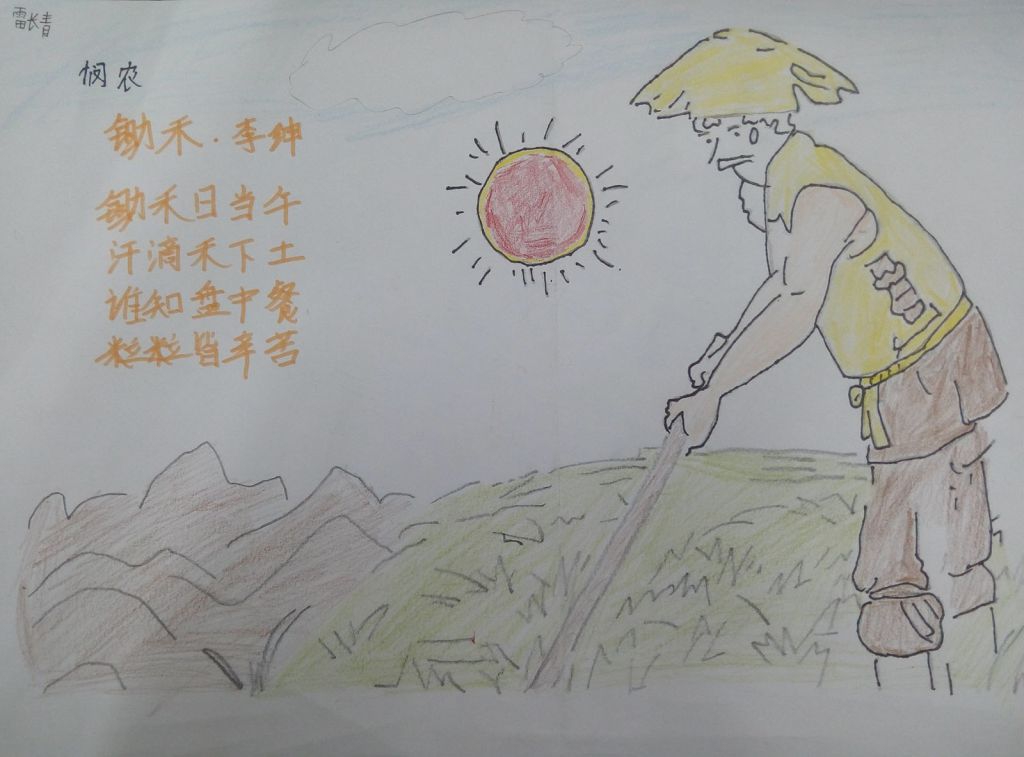 雷长青
悯农
锄禾·李绅
锄禾日当午
汗滴禾下土
谁知盘中餐
粒粒皆辛苦